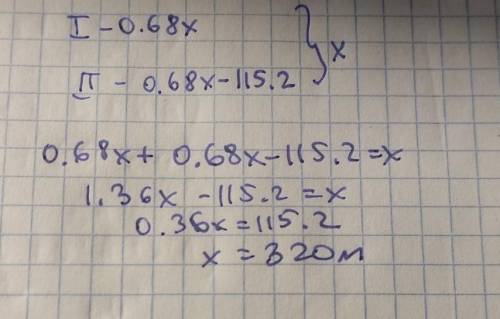 I - 0.68x
II - 0.68x - 115.2 } x
0.68x + 0.68x - 115.2 = x
1.36x - 115.2 = x
0.36x = 115.2
x = 320м